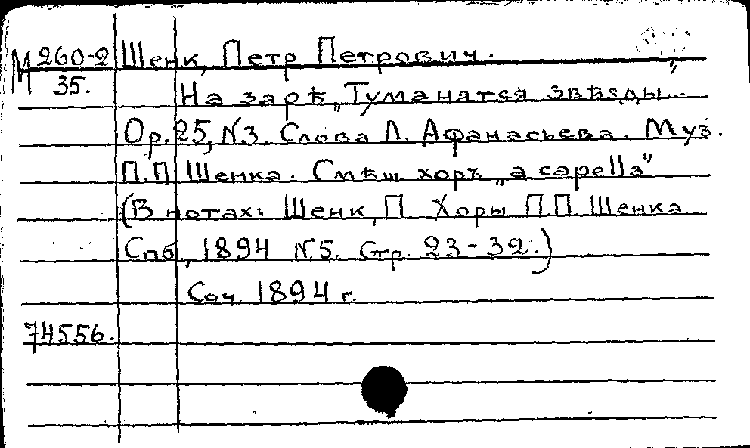 М 260-2 Шенк, Петр Петрович.
35.
На зарѣ „Туманятся звѣзды..."
Op. 25, N3. Слова Л. Афанасьева. Муз.
П.П Шенка. Смѣш хоръ „a capella"
(В нотах: Шенк, П Хоры П.П Шенка
Спб, 1894 N5. Стр. 23-32.)
Соч. 1894 г.
74556.